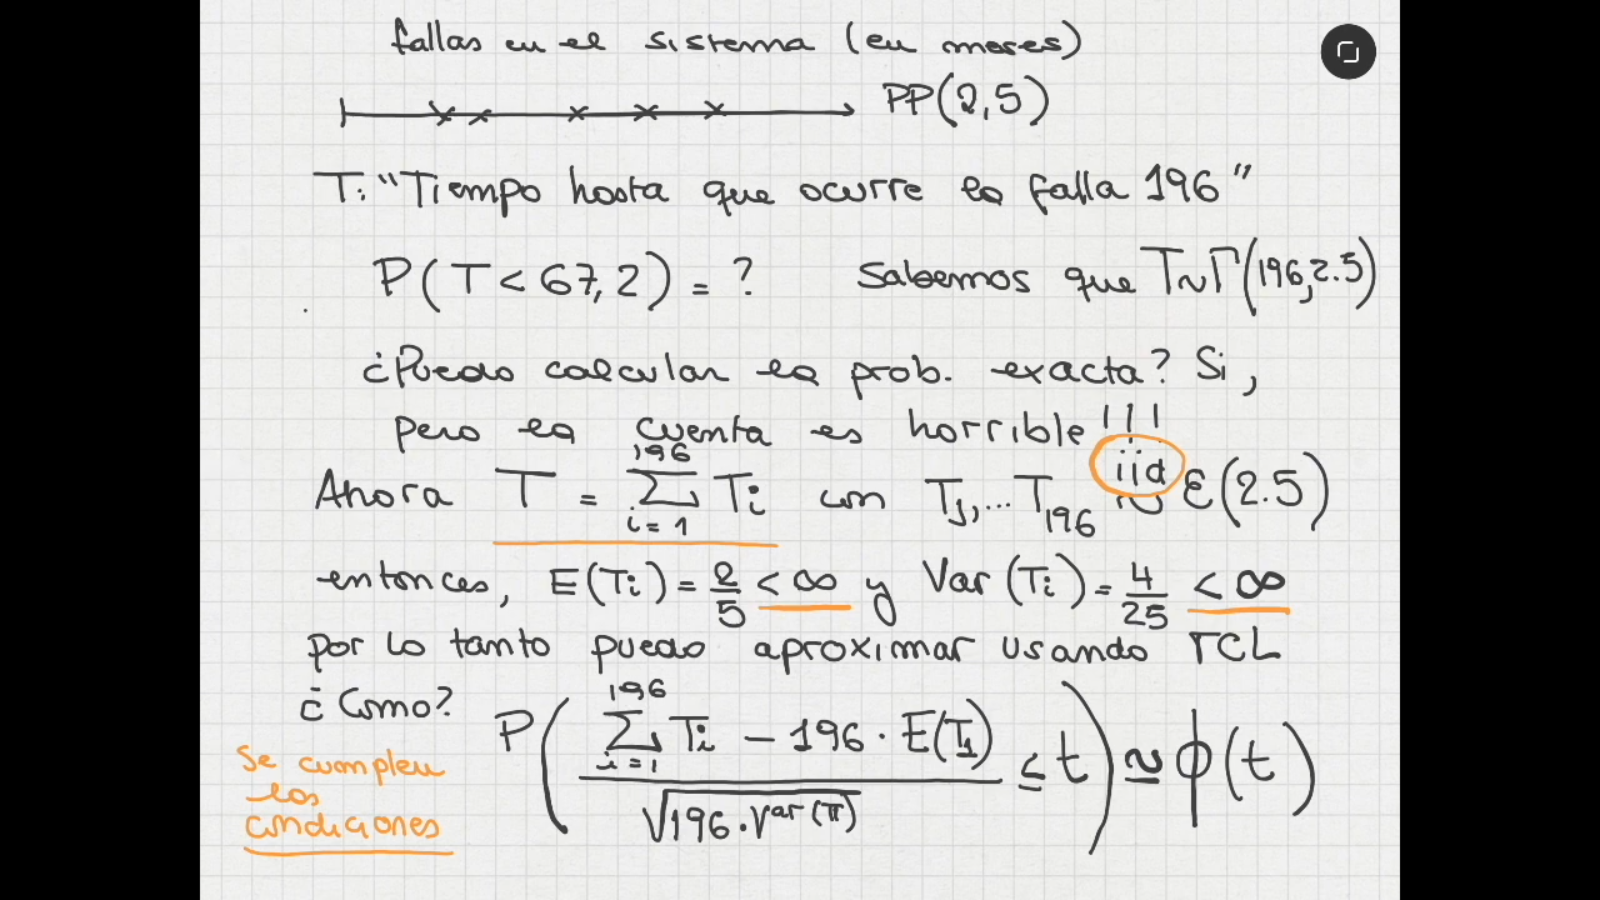 fallas en el sistema (en meses)
PP(2,5)
T: "Tiempo hasta que ocurre la falla 196"
P(T < 67,2) = ? Sabemos que T ~ Γ(196, 2.5)
¿Puedo calcular la prob. exacta? Si,
pero la cuenta es horrible!!!
Ahora T = \sum_{i=1}^{196} Ti con T1,...T196 iid ~ ε(2.5)
entonces, E(Ti) = 2/5 < ∞ y Var(Ti) = 4/25 < ∞
por lo tanto puedo aproximar usando TCL
¿Como? P( (\sum_{i=1}^{196} Ti - 196 · E(T1)) / √(196·Var(Ti)) ≤ t ) ≃ ϕ(t)
Se cumplen
las
condiciones